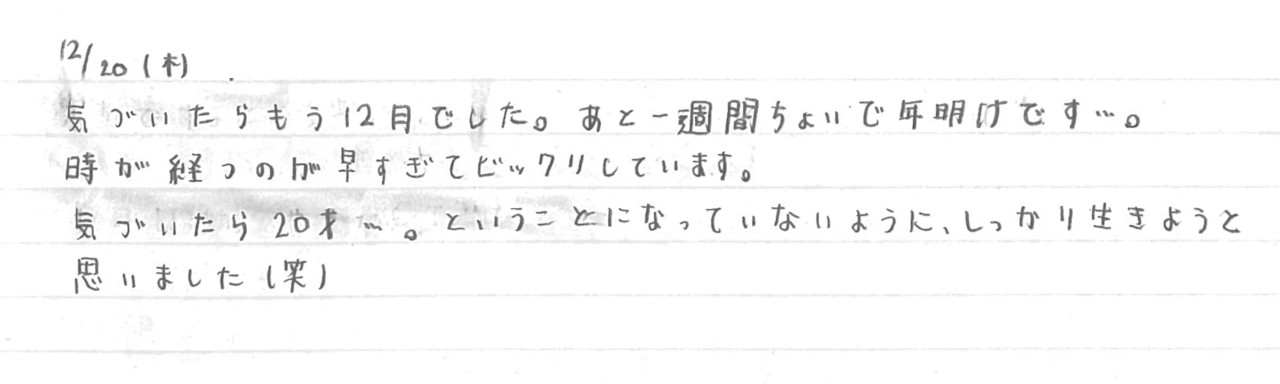 12/20(木)
気づいたらもう12月でした。あと一週間ちょいで年明けです…。
時が経つのが早すぎてビックリしています。
気づいたら20才…。ということになっていないように、しっかり生きようと
思いました(笑)